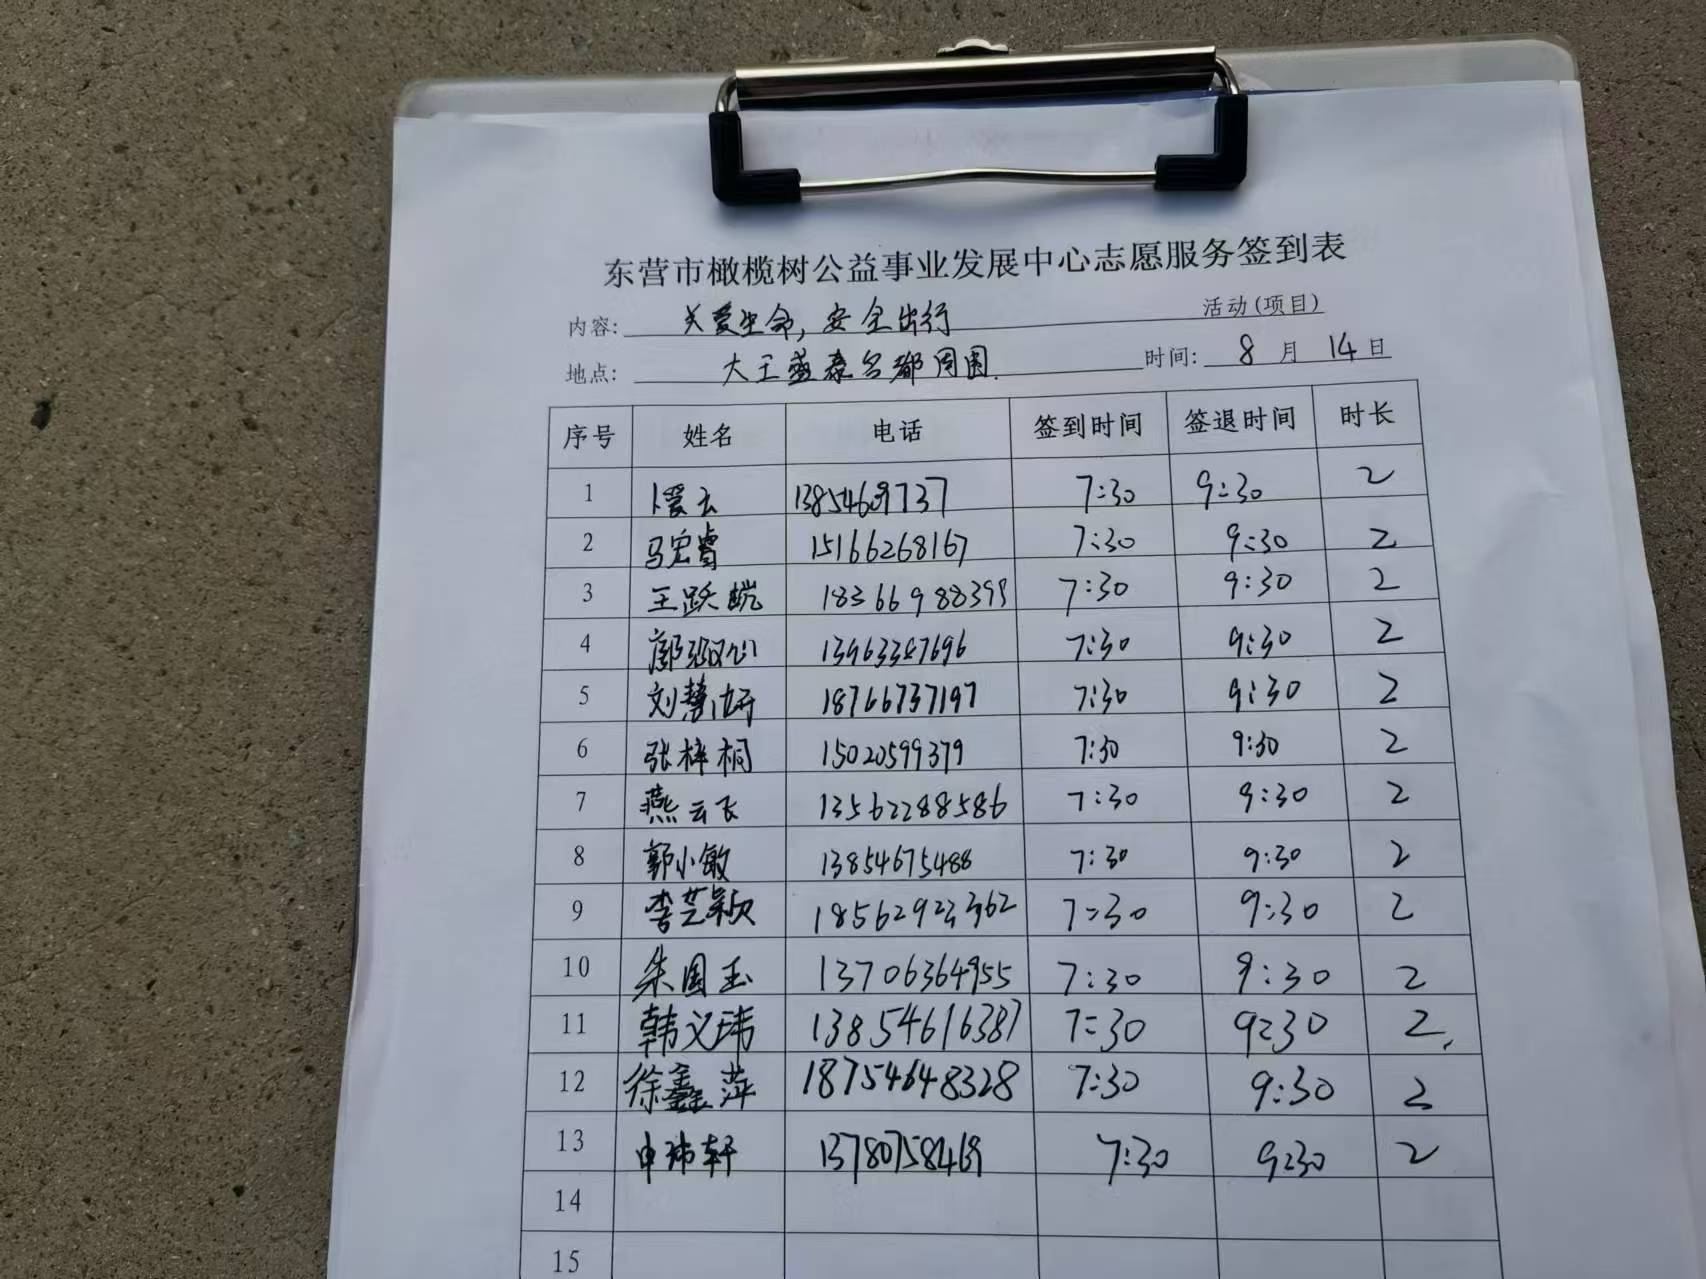 东营市橄榄树公益事业发展中心志愿服务签到表
内容: 关爱生命,安全出行 活动(项目)
地点: 大王盛泰名都周围. 时间: 8 月 14 日
序号 姓名 电话 签到时间 签退时间 时长
1 卜爱云 13854609737 7:30 9:30 2
2 马宏睿 15166268167 7:30 9:30 2
3 王跃皝 18366988399 7:30 9:30 2
4 7:30 9:30 2
5 刘慧妍 18766737197 7:30 9:30 2
6 张梓桐 15020599379 7:30 9:30 2
7 燕云飞 13562288586 7:30 9:30 2
8 郭小敏 13854675488 7:30 9:30 2
9 李芝颖 7:30 9:30 2
10 朱国玉 13706364955 7:30 9:30 2
11 韩义玮 13854616387 7:30 9:30 2.
12 徐鑫萍 18754648328 7:30 9:30 2
13 申玮轩 13780758469 7:30 9:30 2
14
15